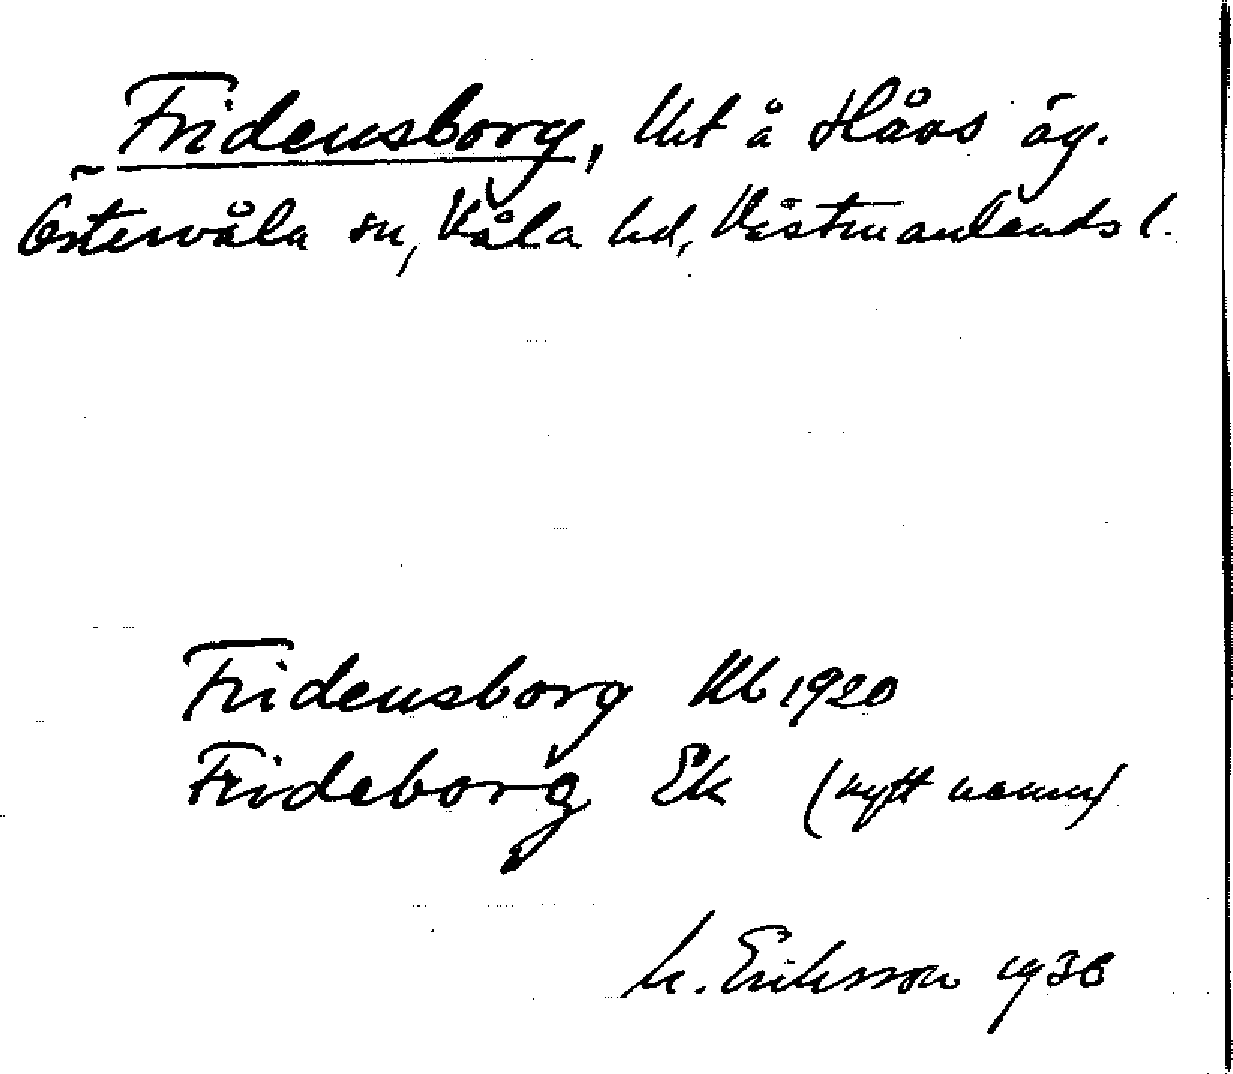 Fridensborg, lht å Håos äg.
Östervåla sn, Våla hd, Västmanlands l.
Fridensborg Kb 1920
Frideborg Ek (nytt namn)
M. Eriksson 1936